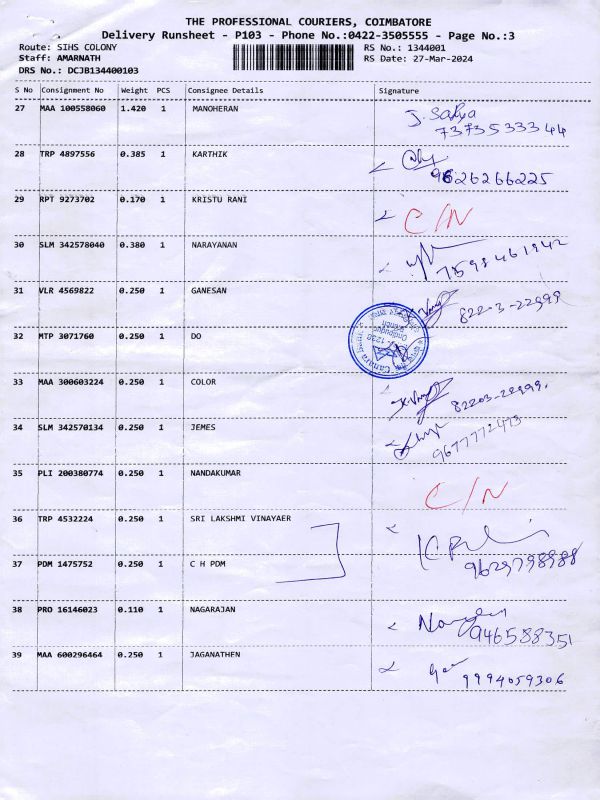 THE PROFESSIONAL COURIERS, COIMBATORE
Delivery Runsheet - P103 - Phone No.:0422-3505555 - Page No.:3
Route: SIHS COLONY RS No.: 1344001
Staff: AMARNATH RS Date: 27-Mar-2024
DRS No.: DCJB134400103
S No Consignment No Weight PCS Consignee Details Signature
27 MAA 100558060 1.420 1 MANOHERAN J. Sathya
7373533344
28 TRP 4897556 0.385 1 KARTHIK
9626266225
29 RPT 9273702 0.170 1 KRISTU RANI C/N
30 SLM 342578040 0.380 1 NARAYANAN 7598461942
31 VLR 4569822 0.250 1 GANESAN 82203-22999
32 MTP 3071760 0.250 1 DO
Canara Bank
33 MAA 300603224 0.250 1 COLOR 82203-22999
34 SLM 342570134 0.250 1 JEMES
9677772473
35 PLI 200380774 0.250 1 NANDAKUMAR C/N
36 TRP 4532224 0.250 1 SRI LAKSHMI VINAYAER
37 PDM 1475752 0.250 1 C H PDM 9629798988
38 PRO 16146023 0.110 1 NAGARAJAN
946588351
39 MAA 600296464 0.250 1 JAGANATHEN
9994059306